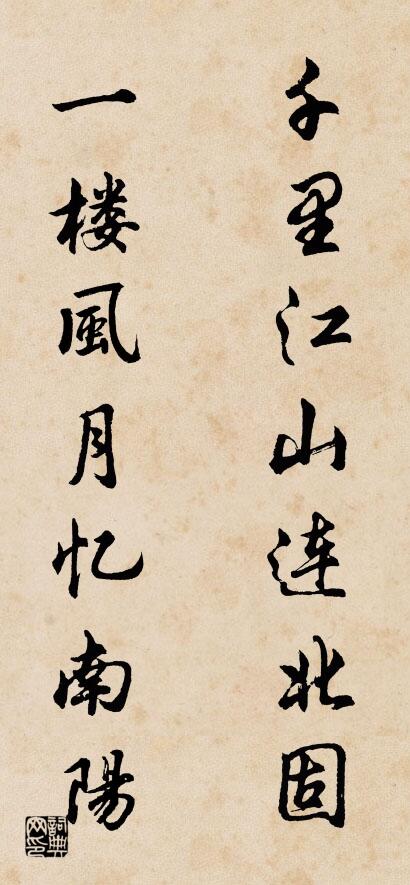 千里江山連北固
一楼風月忆南陽
詞典网印